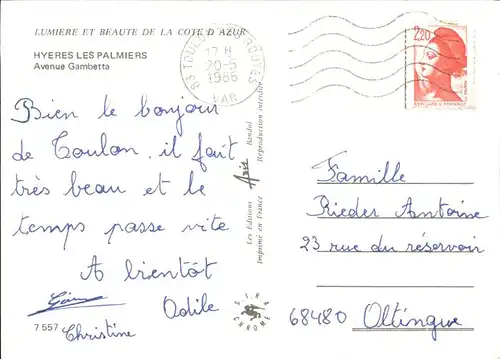 LUMIERE ET BEAUTE DE LA COTE D'AZUR
HYERES LES PALMIERS
Avenue Gambetta
83 TOULON
17 H
20-5
1986
VAR
2,20
Bien le bonjour
de Toulon, il fait
très beau et le
temps passe vite
A bientôt
Odile
Christine
7 557
Les Editions Aris Bandol
Imprimé en France Reproduction interdite
SIRA CHROME
Famille
Rieder Antoine
23 rue du réservoir
68480 Oltingue